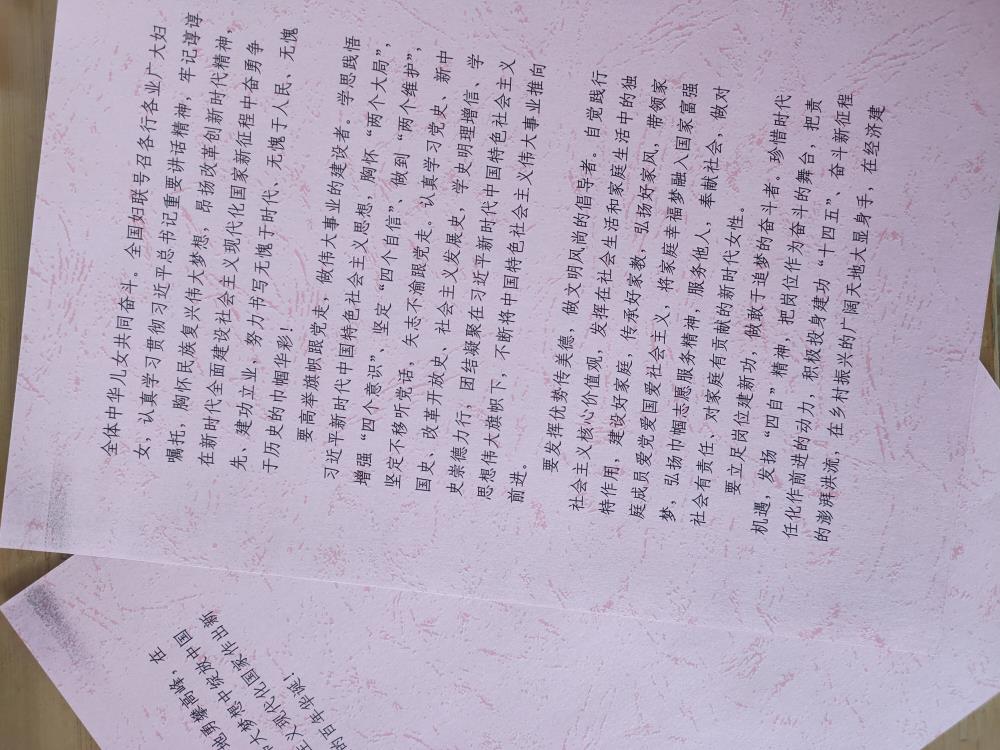 全体中华儿女共同奋斗。全国妇联号召各行各业广大妇
女，认真学习贯彻习近平总书记重要讲话精神，牢记谆谆
嘱托，胸怀民族复兴伟大梦想，昂扬改革创新时代精神，
在新时代全面建设社会主义现代化国家新征程中奋勇争
先、建功立业，努力书写无愧于时代、无愧于人民、无愧
于历史的巾帼华彩！
要高举旗帜跟党走，做伟大事业的建设者。学思践悟
习近平新时代中国特色社会主义思想，胸怀“两个大局”，
增强“四个意识”、坚定“四个自信”、做到“两个维护”，
坚定不移听党话，矢志不渝跟党走。认真学习党史、新中
国史、改革开放史、社会主义发展史，学史明理增信、学
史崇德力行，团结凝聚在习近平新时代中国特色社会主义
思想伟大旗帜下，不断将中国特色社会主义伟大事业推向
前进。
要发挥优势传美德，做文明风尚的倡导者。自觉践行
社会主义核心价值观，发挥在社会生活和家庭生活中的独
特作用，建设好家庭，传承好家教，弘扬好家风，带领家
庭成员爱党爱国爱社会主义，将家庭幸福梦融入国家富强
梦，弘扬巾帼志愿服务精神，服务他人，奉献社会，做对
社会有责任、对家庭有贡献的新时代女性。
要立足岗位建新功，做敢于追梦的奋斗者。珍惜时代
机遇，发扬“四自”精神，把岗位作为奋斗的舞台，把责
任化作前进的动力，积极投身建功“十四五”、奋斗新征程
的澎湃洪流，在乡村振兴的广阔天地大显身手，在经济建
地勇攀高峰，在
大梦想中绽放中国
主义现代化国家作出新
的百年华诞！